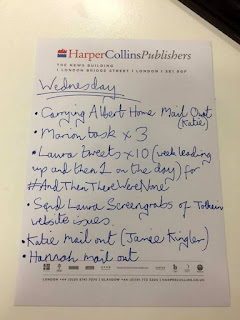 HarperCollinsPublishers
THE NEWS BUILDING
1 LONDON BRIDGE STREET | LONDON | SE1 9GF
Wednesday
• Carrying Albert Home Mail Out
(Katie)
• Marion task x 3
• Laura tweets x 10 (week leading
up and then 1 on the day) for
#AndThenThereWereNone
• Send Laura Screengrabs of Tolkien
website issues
• Katie mail out (Jamie
• Hannah mail out